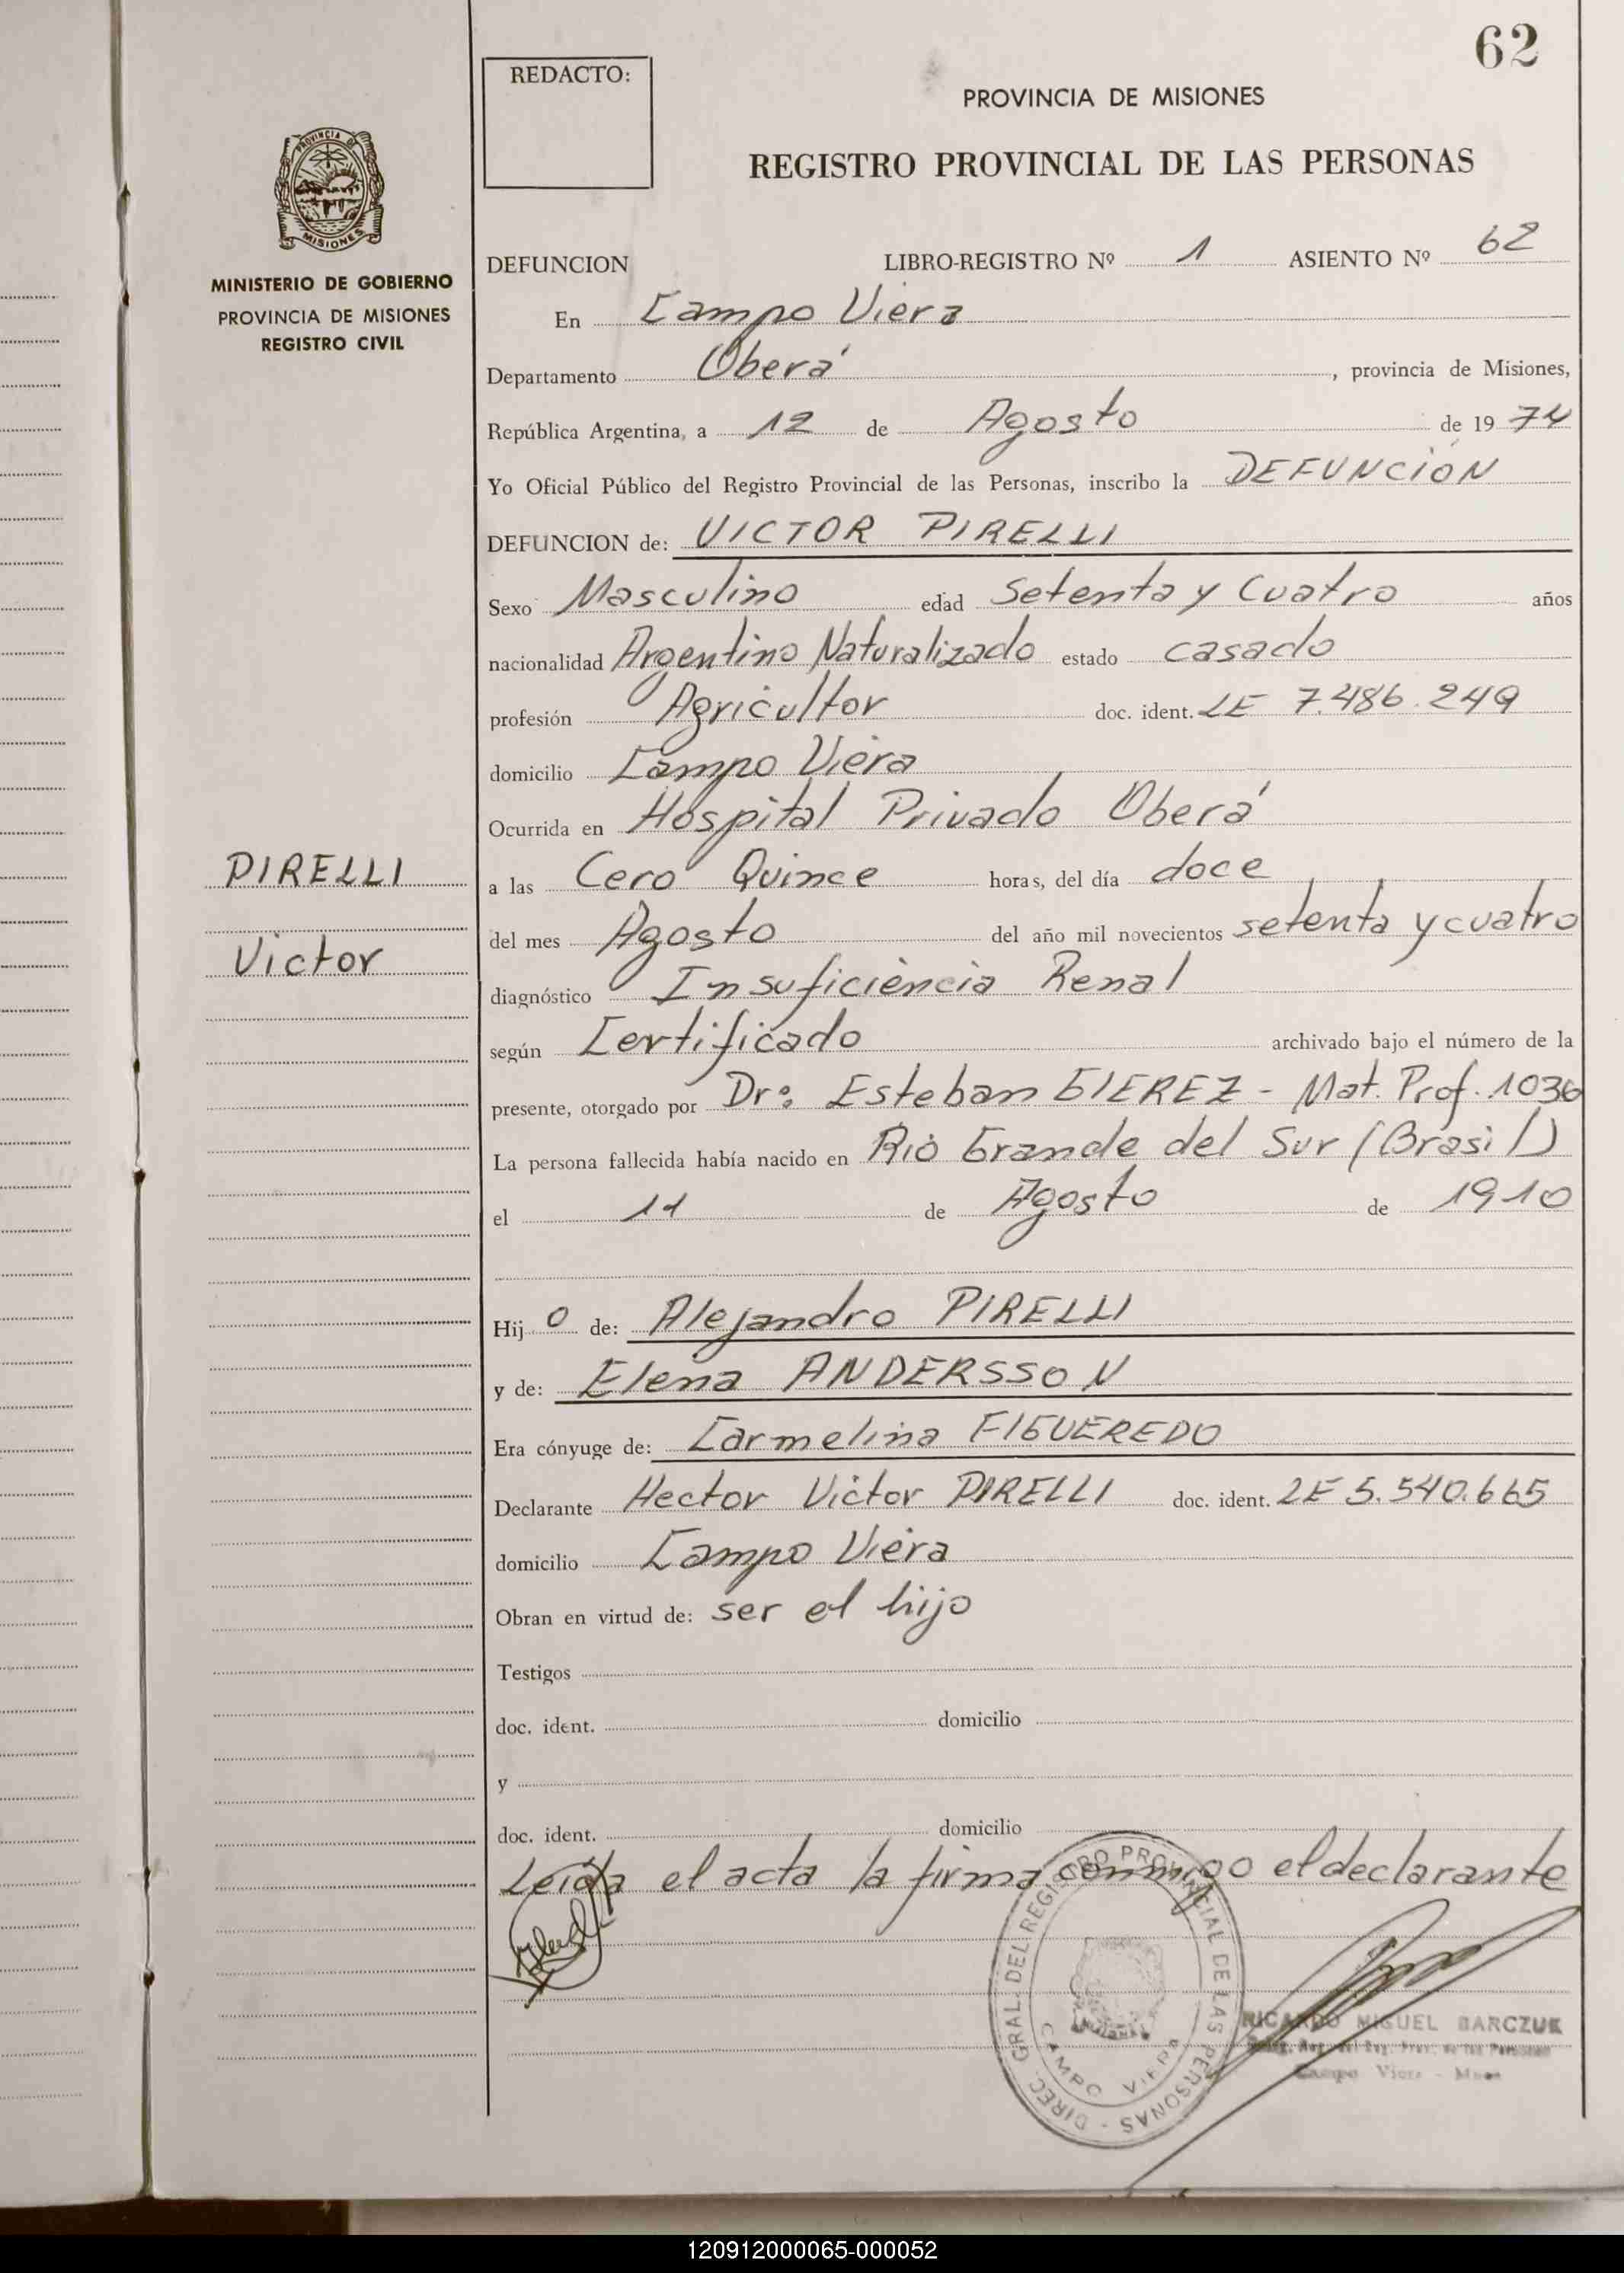 62
REDACTO:
PROVINCIA DE MISIONES
REGISTRO PROVINCIAL DE LAS PERSONAS
PROVINCIA DE
MISIONES
MINISTERIO DE GOBIERNO
PROVINCIA DE MISIONES
REGISTRO CIVIL
DEFUNCION LIBRO-REGISTRO Nº 1 ASIENTO Nº 62
En Campo Viera
Departamento Oberá, provincia de Misiones,
República Argentina, a 12 de Agosto de 19 74
Yo Oficial Público del Registro Provincial de las Personas, inscribo la DEFUNCIÓN
DEFUNCION de: VICTOR PIRELLI
Sexo Masculino edad Setenta y Cuatro años
nacionalidad Argentino Naturalizado estado casado
profesión Agricultor doc. ident. LE 7.486.249
domicilio Campo Viera
Ocurrida en Hospital Privado Oberá
PIRELLI
Victor
a las Cero Quince horas, del día doce
del mes Agosto del año mil novecientos setenta y cuatro
diagnóstico Insuficiencia Renal
según Certificado archivado bajo el número de la
presente, otorgado por Dr: Esteban GIEREZ - Mat. Prof. 1036
La persona fallecida había nacido en Rio Grande del Sur (Brasil)
el 11 de Agosto de 1910
Hij o de: Alejandro PIRELLI
y de: Elena ANDERSSON
Era cónyuge de: Carmelina FIGUEREDO
Declarante Hector Victor PIRELLI doc. ident. LE 5.540.665
domicilio Campo Viera
Obran en virtud de: ser el hijo
Testigos
doc. ident. domicilio
y
doc. ident. domicilio
Leida el acta la firma conmigo el declarante
DIREC. GRAL. DEL REGISTRO PROVINCIAL DE LAS PERSONAS -
CAMPO VIERA
RICARDO MIGUEL BARCZUK
Campo Viera - Mnes
120912000065-000052